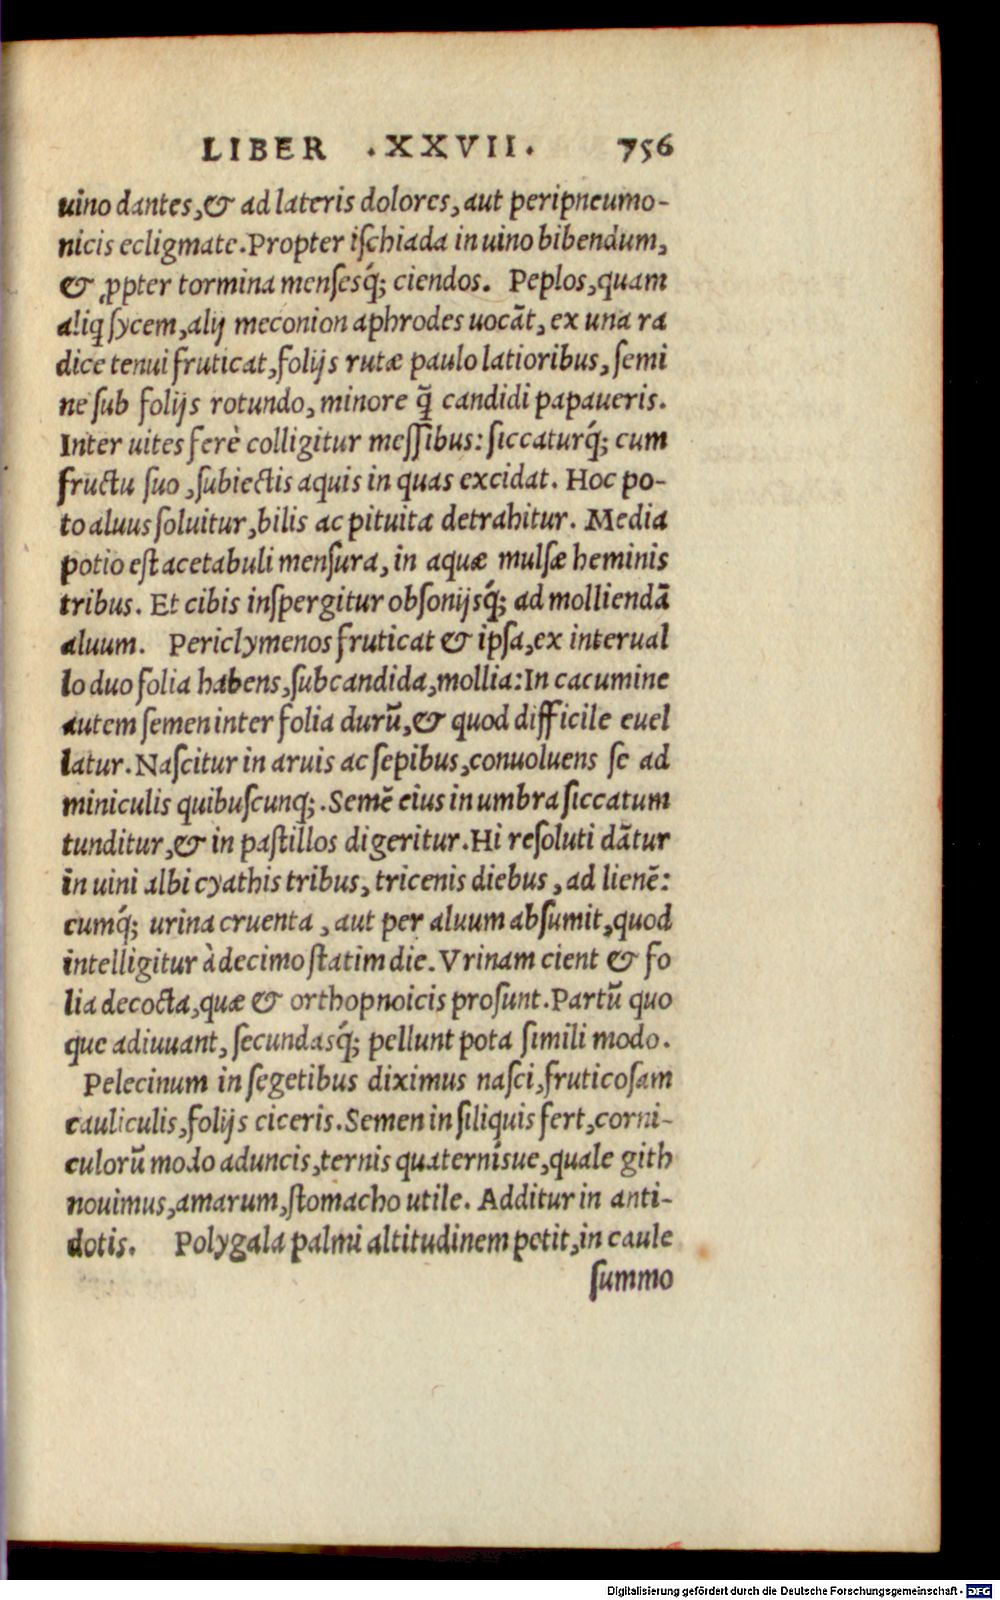 LIBER .XXVII. 756
uino dantes,& ad lateris dolores,aut peripneumo-
nicis ecligmate.Propter iſchiada in uino bibendum,
& ꝓpter tormina menſesq́; ciendos. Peplos,quam
aliq ſycem,alij meconion aphrodes uocãt, ex una ra
dice tenui fruticat,folijs rutæ paulo latioribus, ſemi
ne ſub folijs rotundo, minore q̃ candidi papaueris.
Inter uites ferè colligitur meſſibus: ſiccaturq́; cum
fructu ſuo ,ſubiectis aquis in quas excidat. Hoc po-
to aluus ſoluitur,bilis ac pituita detrahitur. Media
potio eſt acetabuli menſura, in aquæ mulſæ heminis
tribus. Et cibis inſpergitur obſonijsq́; ad molliendã
aluum. Periclymenos fruticat & ipſa,ex interual
lo duo folia habens,ſubcandida,mollia:In cacumine
autem ſemen inter folia durũ,& quod difficile euel
latur.Naſcitur in aruis ac ſepibus,conuoluens ſe ad
miniculis quibuſcunq;.Semẽ eius in umbra ſiccatum
tunditur,& in paſtillos digeritur.Hi reſoluti dãtur
in uini albi cyathis tribus, tricenis diebus , ad lienẽ:
cumq́; urina cruenta , aut per aluum abſumit,quod
intelligitur à decimo ſtatim die.Vrinam cient & fo
lia decocta,quæ & orthopnoicis proſunt.Partũ quo
que adiuuant, ſecundasq́; pellunt pota ſimili modo.
Pelecinum in ſegetibus diximus naſci,fruticoſam
cauliculis,folijs ciceris.Semen in ſiliquis fert,corni-
culorũ modo aduncis,ternis quaternisue,quale gith
nouimus,amarum,ſtomacho utile. Additur in anti-
dotis. Polygala palmi altitudinem petit,in caule
ſummo
Digitalisierung gefördert durch die Deutsche Forschungsgemeinschaft - DFG